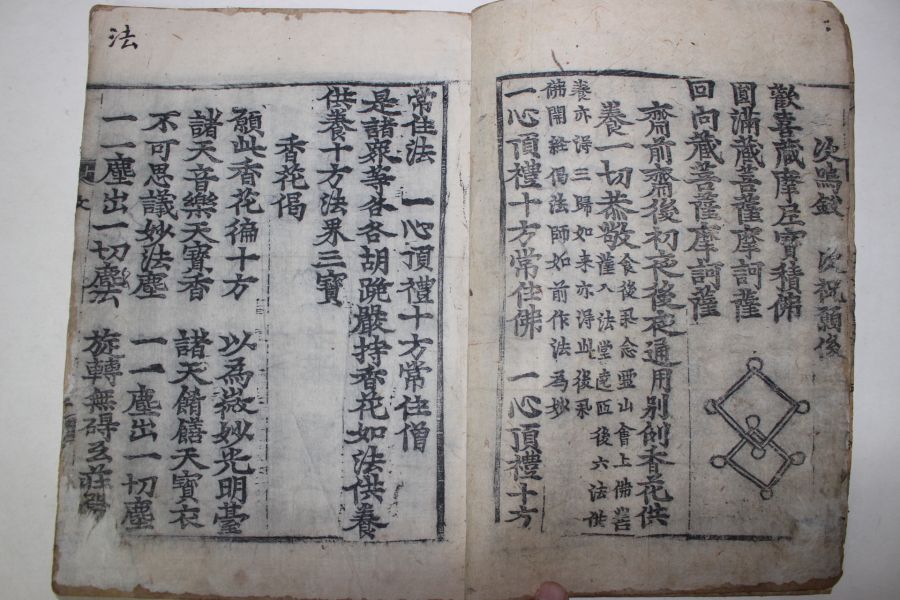 次鳴鈸 次祝願後
歡喜藏摩尼寶積佛
圓滿藏菩薩摩訶薩
回向藏菩薩摩訶薩
齋前齋後初夜後夜通用別例香花供
養一切恭敬
食後衆念靈山會上佛菩
薩入法堂遶匝後六法供
養亦得三歸如來亦得此後衆
佛開経偈法師如前作法為妙
一心頂禮十方常住佛 一心頂禮十方
法
常住法 一心頂禮十方常住僧
是諸衆等各各胡跪嚴持香花如法供養
供養十方法界三寶
香花偈
願此香花徧十方 以為微妙光明臺
諸天音樂天寶香 諸天餚饍天寶衣
不可思議妙法塵 一一塵出一切塵
一一塵出一切雲 旋轉無碍互莊嚴